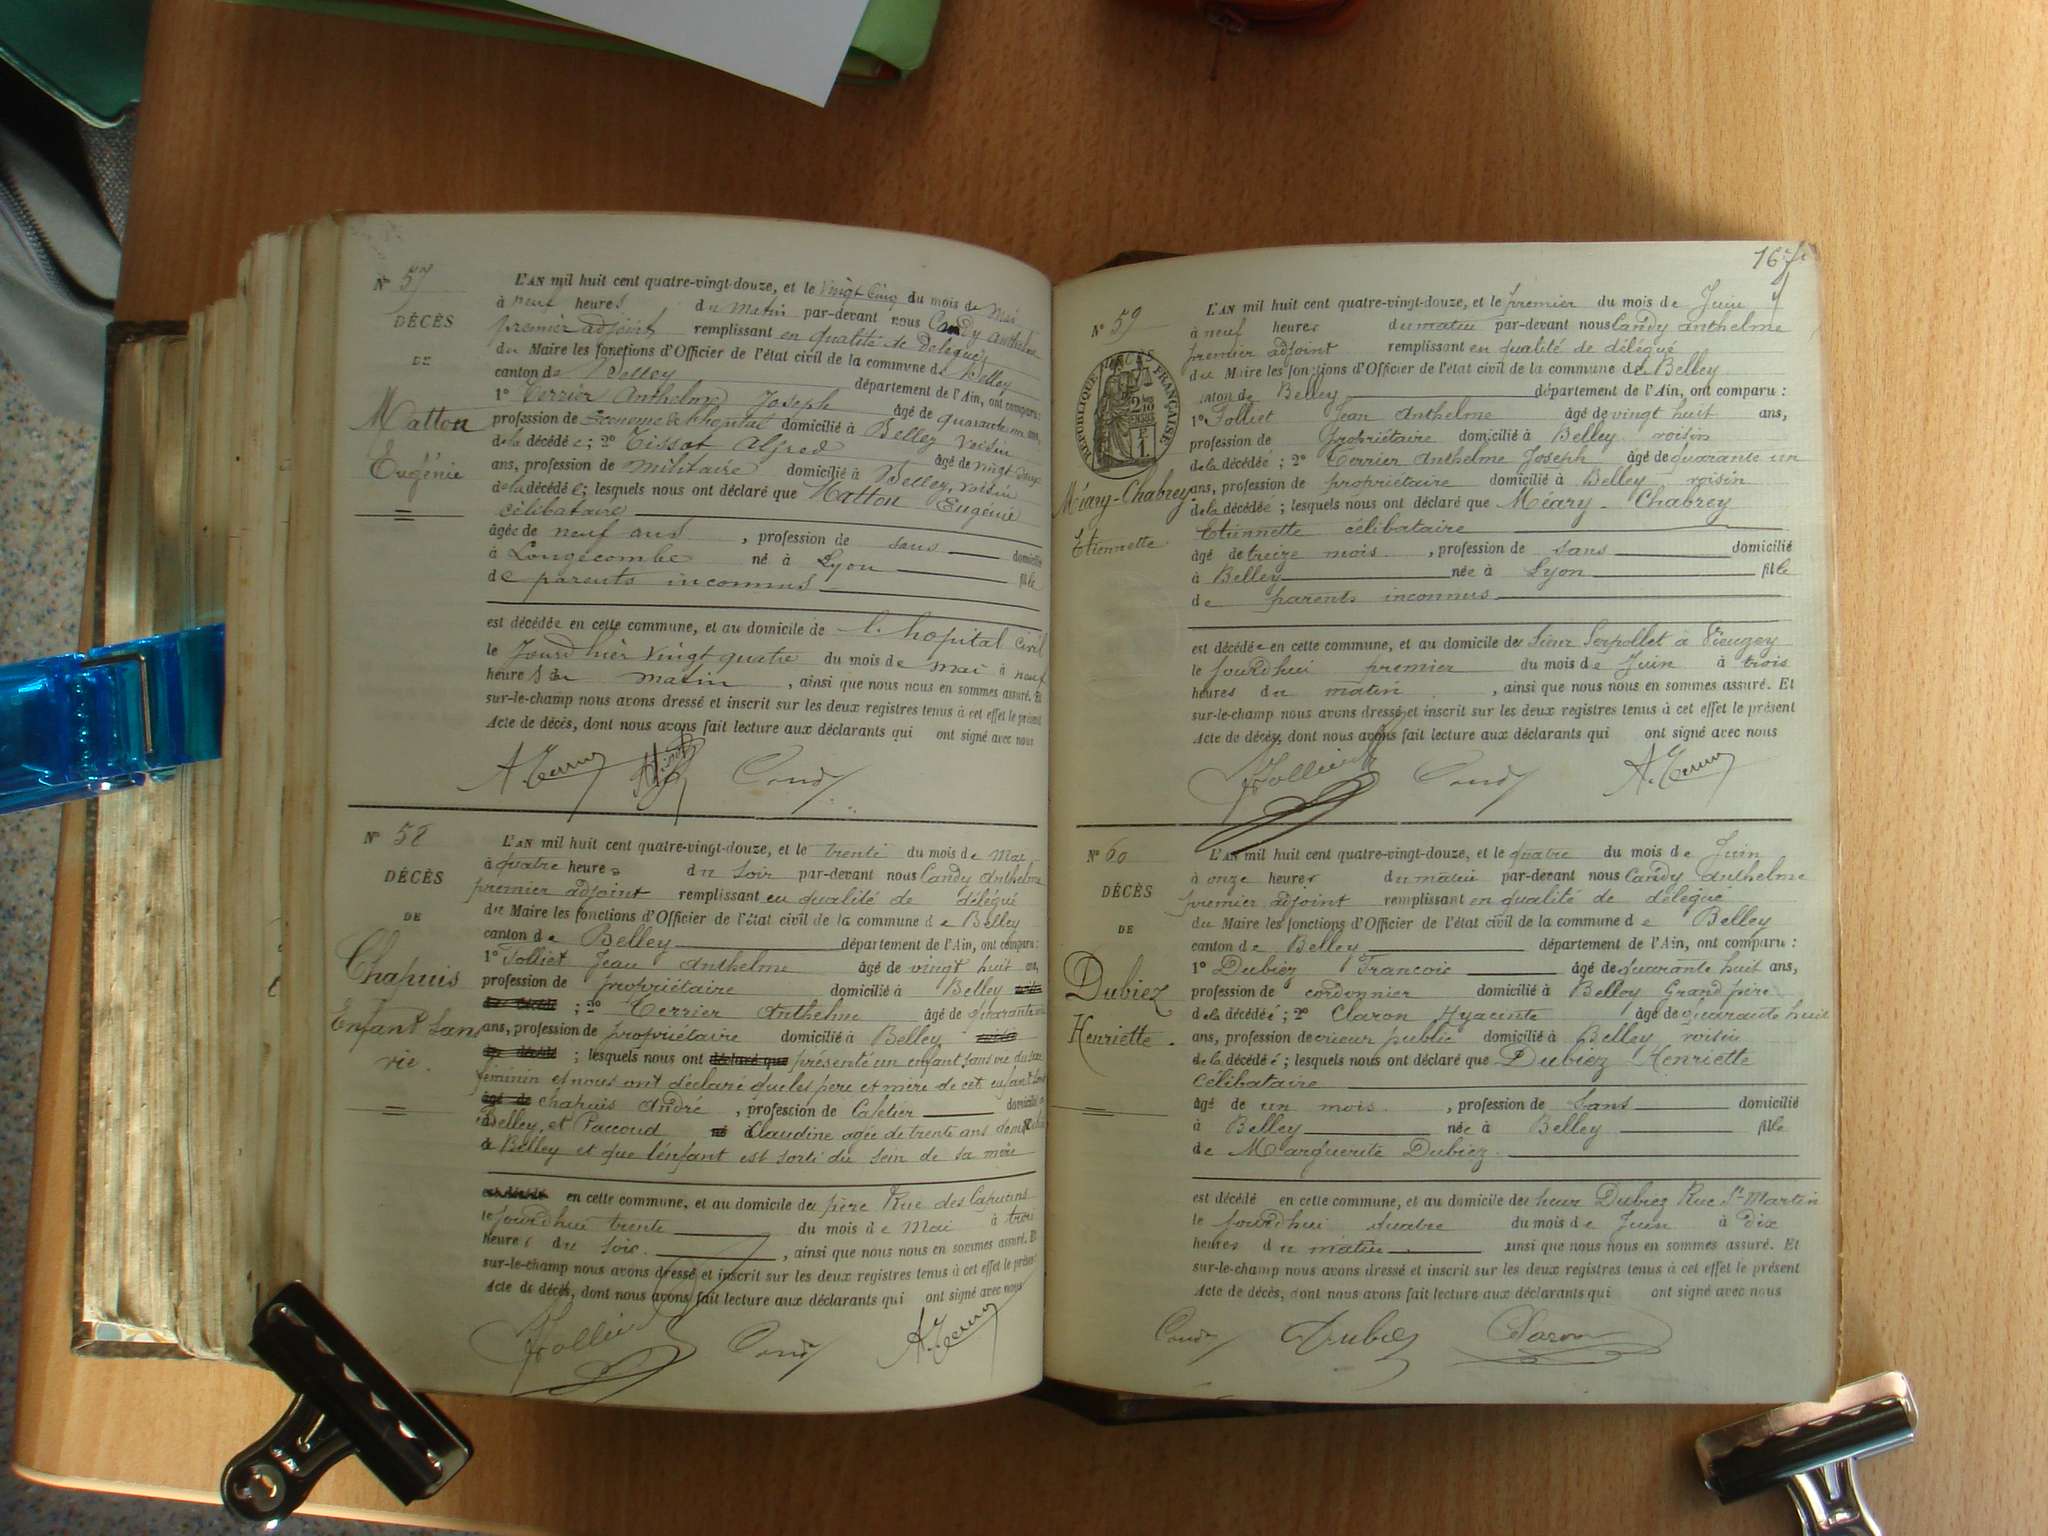 Nº 57
DÉCÈS
DE
Matton
Eugénie
L'AN mil huit cent quatre-vingt-douze, et le vingt cinq du mois de Mai
à neuf heures du matin par-devant nous Candy Anthelme
premier adjoint remplissant en qualité de délégué
du Maire les fonctions d'Officier de l'état civil de la commune de Belley
canton de Belley département de l'Ain, ont comparu :
1º Terrier Anthelme Joseph âgé de quarante un ans,
profession de économe de l'hopital domicilié à Belley voisin
de la décédée ; 2º Tissot Alfred âgé de vingt deux
ans, profession de militaire domicilié à Belley, voisin
de la décédée ; lesquels nous ont déclaré que Matton Eugénie
célibataire
âgée de neuf ans , profession de sans domicilié
à Longecombe né à Lyon fille
de parents inconnus
est décédée en cette commune, et au domicile de l'hopital civil
le jourd'hier vingt quatre du mois de mai à neuf
heures du matin , ainsi que nous nous en sommes assuré. Et
sur-le-champ nous avons dressé et inscrit sur les deux registres tenus à cet effet le présent
Acte de décès, dont nous avons fait lecture aux déclarants qui ont signé avec nous
A. Terrier Candy
Nº 58
DÉCÈS
DE
Chapuis
Enfant sans
vie.
L'AN mil huit cent quatre-vingt-douze, et le trente du mois de Mai
à quatre heures du soir par-devant nous Candy Anthelme
premier adjoint remplissant en qualité de délégué
du Maire les fonctions d'Officier de l'état civil de la commune de Belley
canton de Belley département de l'Ain, ont comparu :
1º Tolliet Jean Anthelme âgé de vingt huit ans,
profession de propriétaire domicilié à Belley
; 2º Terrier Anthelme âgé de quarante un
ans, profession de propriétaire domicilié à Belley
; lesquels nous ont déclaré que présenté un enfant sans vie du sexe
féminin et nous ont déclaré que les père et mère de cet enfant sont
âgé de chapuis André , profession de Cafetier domicilié à
Belley, et Paccoud né Claudine agée de trente ans domiciliée
à Belley et que l'enfant est sorti du sein de sa mère
est décédé en cette commune, et au domicile du père Rue des Capucins
le jourd'hui trente du mois de Mai à trois
heures du soir. , ainsi que nous nous en sommes assuré. Et
sur-le-champ nous avons dressé et inscrit sur les deux registres tenus à cet effet le présent
Acte de décès, dont nous avons fait lecture aux déclarants qui ont signé avec nous
Tolliet Candy A. Terrier
167
Nº 59
RÉPUBLIQUE FRANÇAISE
Méary-Chabrey
Etiennette
L'AN mil huit cent quatre-vingt-douze, et le premier du mois de Juin
à neuf heures du matin par-devant nous Candy anthelme
premier adjoint remplissant en qualité de délégué
du Maire les fonctions d'Officier de l'état civil de la commune de Belley
canton de Belley département de l'Ain, ont comparu :
1º Tolliet Jean Anthelme âgé de vingt huit ans,
profession de propriétaire domicilié à Belley voisin
de la décédée ; 2º Terrier Anthelme Joseph âgé de quarante un
ans, profession de propriétaire domicilié à Belley voisin
de la décédée ; lesquels nous ont déclaré que Méary-Chabrey
Etiennette célibataire
âgé de treize mois. , profession de sans domicilié
à Belley née à Lyon fille
de parents inconnus
est décédée en cette commune, et au domicile du Sieur Serpollet à Pieugey
le jourd'hui premier du mois de Juin à trois
heures du matin , ainsi que nous nous en sommes assuré. Et
sur-le-champ nous avons dressé et inscrit sur les deux registres tenus à cet effet le présent
Acte de décès, dont nous avons fait lecture aux déclarants qui ont signé avec nous
Tolliet Candy A. Terrier
Nº 60
DÉCÈS
DE
Dubiez
Henriette.
L'AN mil huit cent quatre-vingt-douze, et le quatre du mois de Juin
à onze heures du matin par-devant nous Candy Anthelme
premier adjoint remplissant en qualité de délégué
du Maire les fonctions d'Officier de l'état civil de la commune de Belley
canton de Belley département de l'Ain, ont comparu :
1º Dubiez Francois âgé de quarante huit ans,
profession de cordonnier domicilié à Belley Grand père
de la décédée ; 2º Claron Hyacinte âgé de quarante huit
ans, profession de crieur public domicilié à Belley voisin
de la décédée ; lesquels nous ont déclaré que Dubiez Henriette
célibataire
âgé de un mois. , profession de sans domicilié
à Belley née à Belley fille
de Marguerite Dubiez.
est décédé en cette commune, et au domicile de Dubiez Rue St-Martin
le jourd'hui quatre du mois de Juin à dix
heures du matin ainsi que nous nous en sommes assuré. Et
sur-le-champ nous avons dressé et inscrit sur les deux registres tenus à cet effet le présent
Acte de décès, dont nous avons fait lecture aux déclarants qui ont signé avec nous
Candy Dubiez Claron